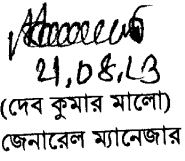 21.08.23
(দেব কুমার মালো)
জেনারেল ম্যানেজার